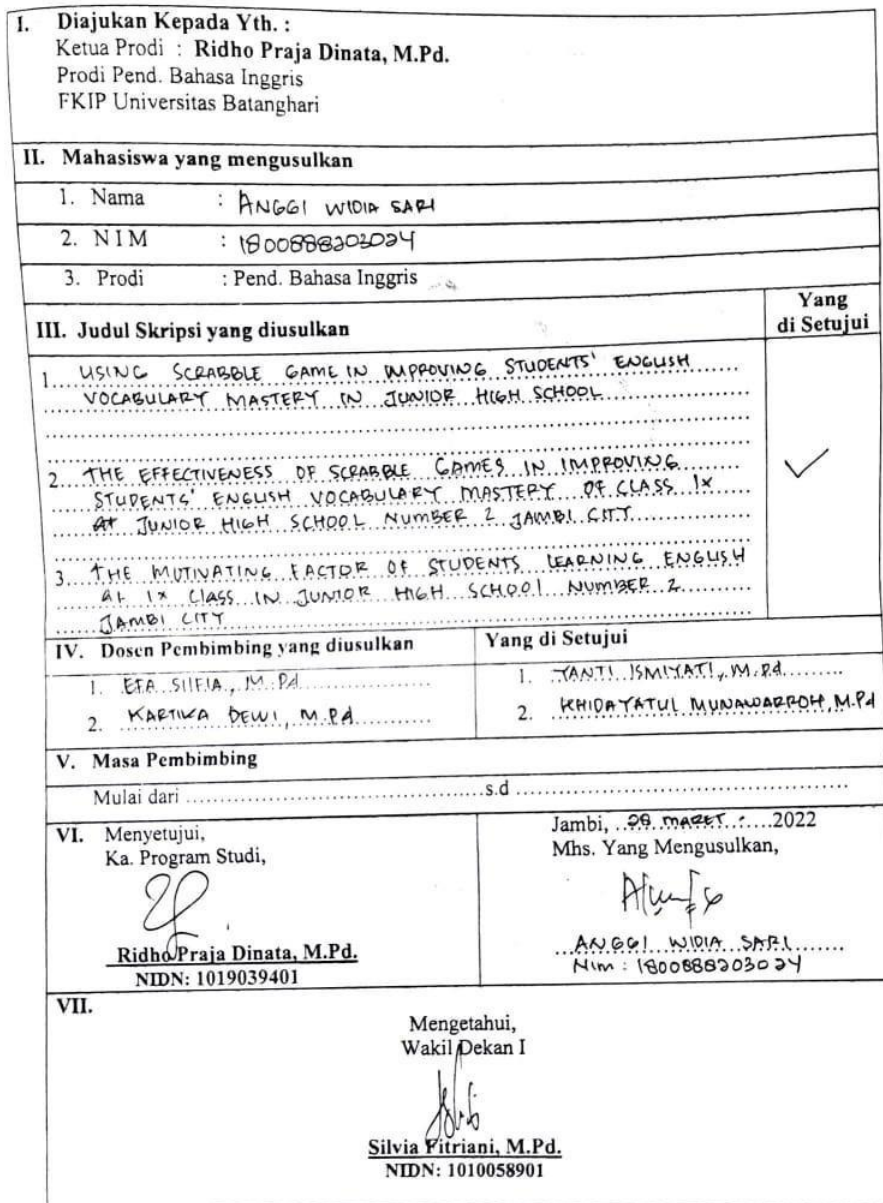 I. Diajukan Kepada Yth. :
Ketua Prodi : Ridho Praja Dinata, M.Pd.
Prodi Pend. Bahasa Inggris
FKIP Universitas Batanghari
II. Mahasiswa yang mengusulkan
1. Nama : ANGGI WIDIA SARI
2. NIM : 1800888203024
3. Prodi : Pend. Bahasa Inggris
III. Judul Skripsi yang diusulkan
Yang
di Setujui
1. USING SCRABBLE GAME IN IMPROVING STUDENTS' ENGLISH
VOCABULARY MASTERY IN JUNIOR HIGH SCHOOL
2. THE EFFECTIVENESS OF SCRABBLE GAMES IN IMPROVING
STUDENTS' ENGLISH VOCABULARY MASTERY OF CLASS IX
AT JUNIOR HIGH SCHOOL NUMBER 2 JAMBI CITY
✓
3. THE MUTIVATING FACTOR OF STUDENTS LEARNING ENGLISH
At IX Class IN JUNIOR HIGH SCHOOL NUMBER 2
JAMBI CITY
IV. Dosen Pembimbing yang diusulkan
Yang di Setujui
1. EFA SILFIA, M.Pd
1. YANTI ISMIYATI, M.Pd
2. KARTIKA DEWI, M.Pd
2. KHIDAYATUL MUNAWARROH, M.Pd
V. Masa Pembimbing
Mulai dari ........ s.d ........
VI. Menyetujui,
Ka. Program Studi,
Ridho Praja Dinata, M.Pd.
NIDN: 1019039401
Jambi, MARET 2022
Mhs. Yang Mengusulkan,
ANGGI WIDIA SARI
Nim : 1800888203024
VII.
Mengetahui,
Wakil Dekan I
Silvia Fitriani, M.Pd.
NIDN: 1010058901